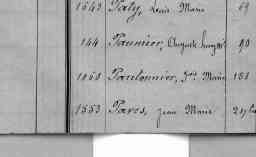 1643 Paty, Louis Marie 69
144 Paumier, Auguste 90
1068 Paulonnier, Marie 188
1553 Paros, Jean Marie